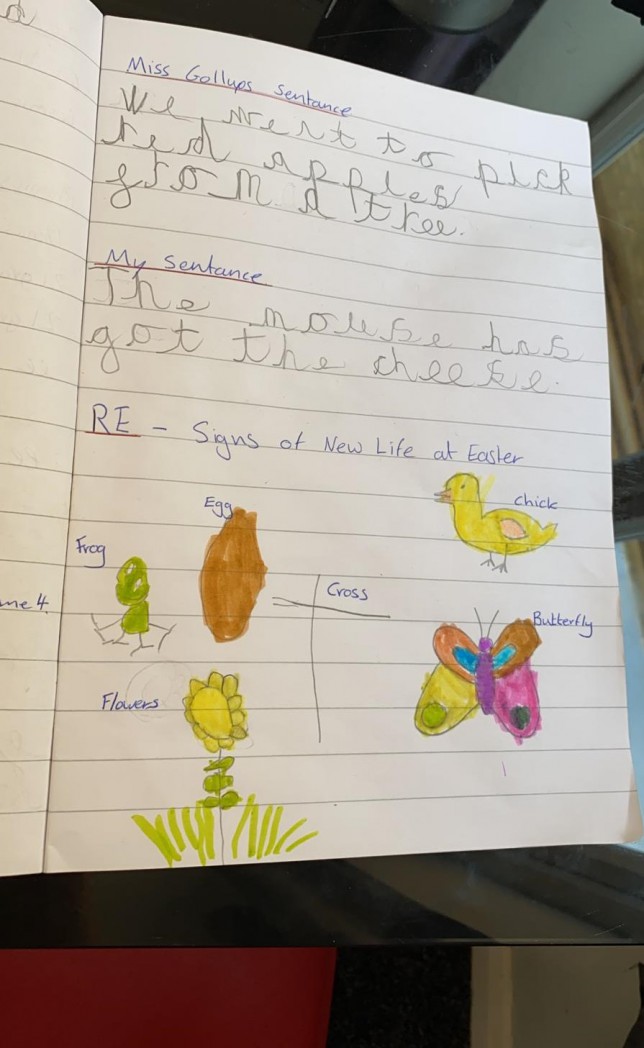 Miss Gollups Sentance
We went to pick
red apples
from a tree.
My Sentance
The mouse has
got the cheese.
RE - Signs of New Life at Easter
Egg
Chick
Frog
Cross
me 4.
Butterfly
Flowers